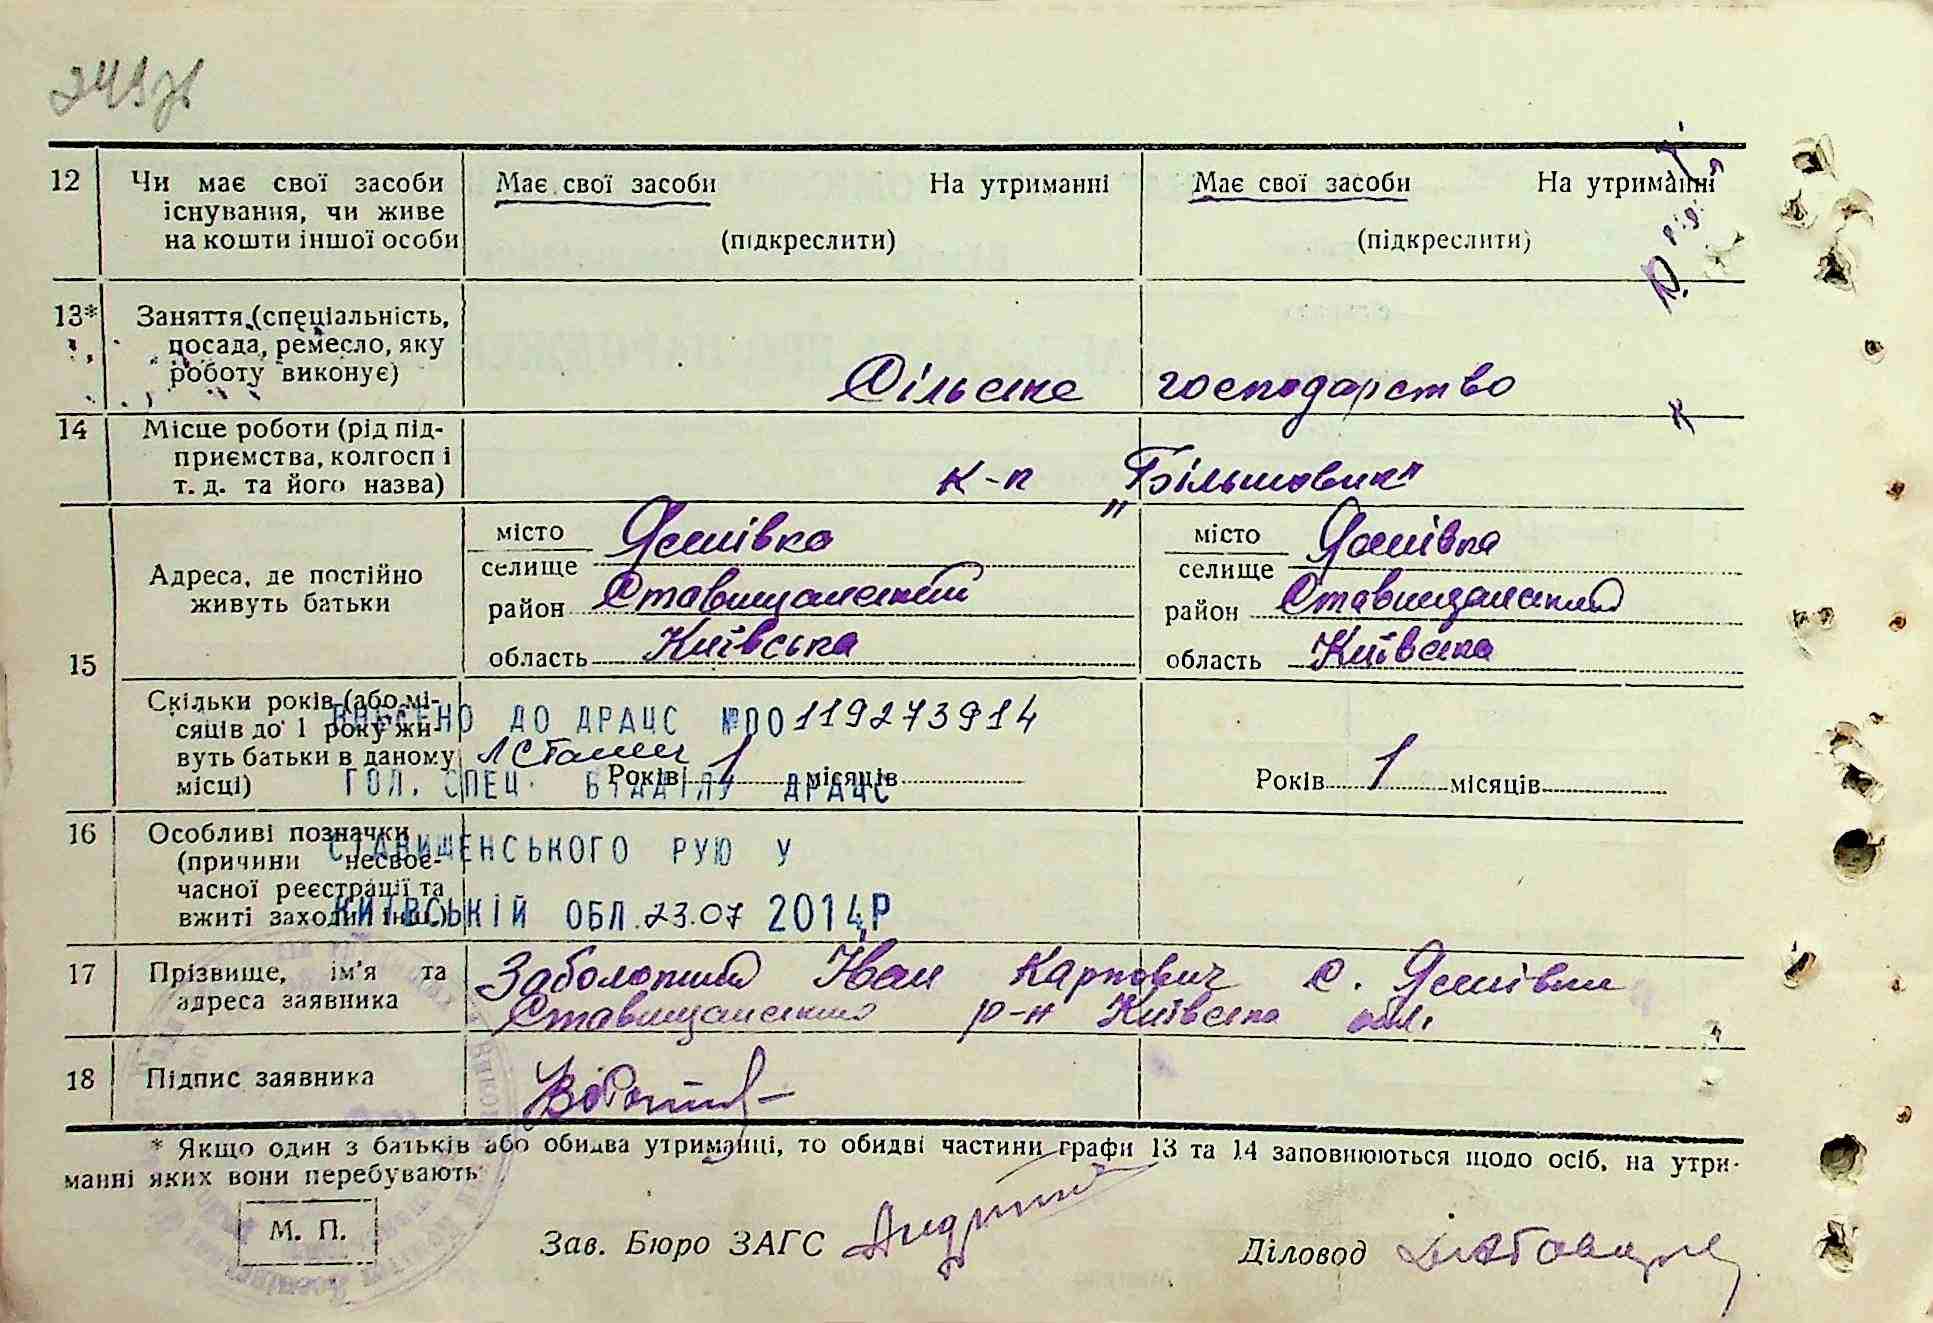 12 Чи має свої засоби існування, чи живе на кошти іншої особи
Має свої засоби На утриманні
(підкреслити)
Має свої засоби На утриманні
(підкреслити)
13* Заняття (спеціальність,
посада, ремесло, яку
роботу виконує)
Сільське господарство
14 Місце роботи (рід під-
приємства, колгосп і
т. д. та його назва)
к-п „Більшовик"
15
Адреса, де постійно
живуть батьки
місто
селище Яшівка
район Ставищанський
область Київська
місто
селище Яшівка
район Ставищанський
область Київська
Скільки років (або мі-
сяців до 1 року жи-
вуть батьки в даному
місці)
Років 1 місяців
Років 1 місяців
ВНЕСЕНО ДО ДРАЦС №00119273914
ГОЛ. СПЕЦ. ВІДДІЛУ ДРАЦС
СТАВИЩЕНСЬКОГО РУЮ У
КИЇВСЬКІЙ ОБЛ. 23.07 2014Р
16 Особливі позначки
(причини несвоє-
часної реєстрації та
вжиті заходи і інш.)
17 Прізвище, ім'я та
адреса заявника
Заболотний Іван Карпович с. Яшівки
Ставищанського р-н Київська обл.
18 Підпис заявника
* Якщо один з батьків або обидва утриманці, то обидві частини графи 13 та 14 заповнюються щодо осіб, на утри-
манні яких вони перебувають
М. П.
Зав. Бюро ЗАГС
Діловод